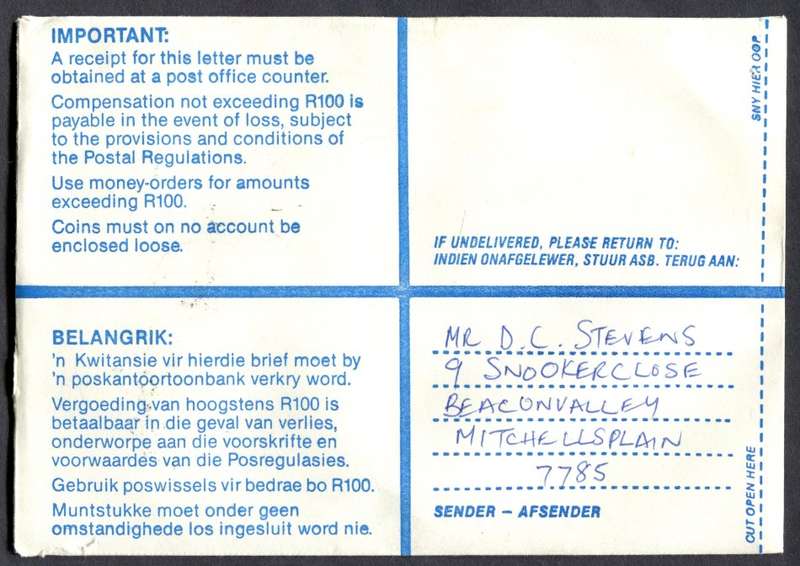 IMPORTANT:
A receipt for this letter must be
obtained at a post office counter.
Compensation not exceeding R100 is
payable in the event of loss, subject
to the provisions and conditions of
the Postal Regulations.
Use money-orders for amounts
exceeding R100.
Coins must on no account be
enclosed loose.
SNY HIER OOP
IF UNDELIVERED, PLEASE RETURN TO:
INDIEN ONAFGELEWER, STUUR ASB. TERUG AAN:
BELANGRIK:
'n Kwitansie vir hierdie brief moet by
'n poskantoortoonbank verkry word.
Vergoeding van hoogstens R100 is
betaalbaar in die geval van verlies,
onderworpe aan die voorskrifte en
voorwaardes van die Posregulasies.
Gebruik poswissels vir bedrae bo R100.
Muntstukke moet onder geen
omstandighede los ingesluit word nie.
MR D.C. STEVENS
9 SNOOKERCLOSE
BEACONVALLEY
MITCHELLSPLAIN
7785
SENDER – AFSENDER
CUT OPEN HERE